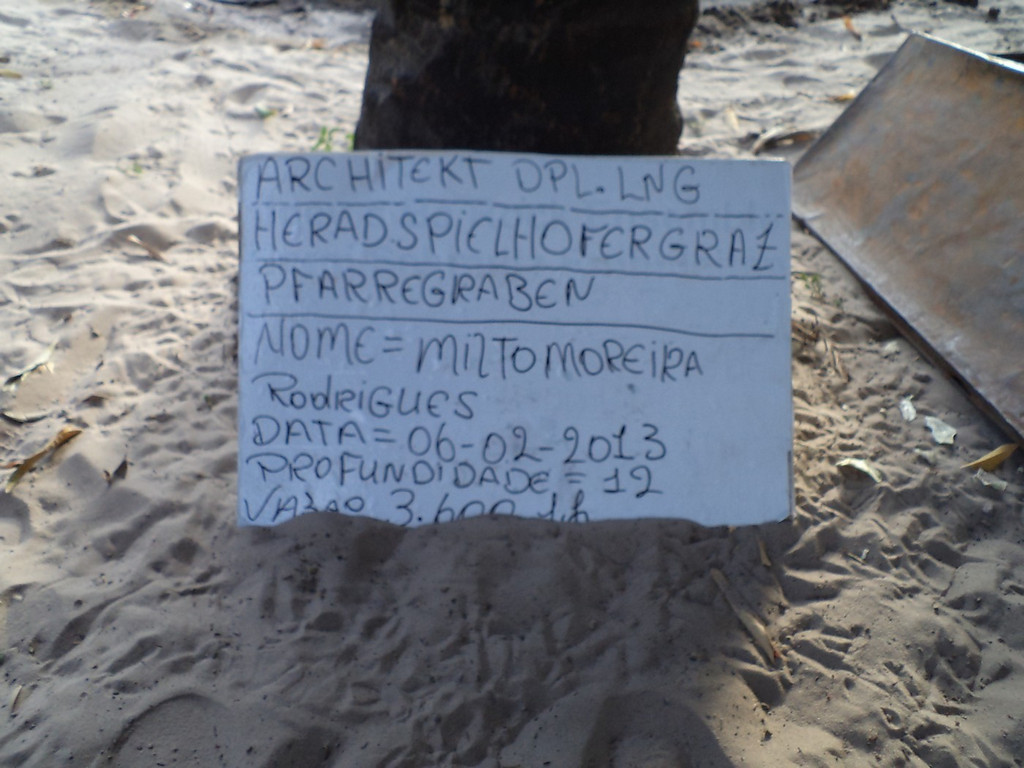 ARCHITEKT DPL. LNG
HERAD SPIELHOFERGRAZ
PFARREGRABEN
NOME = MILTOMOREIRA
RODRIGUES
DATA = 06-02-2013
PROFUNDIDADE = 12
VAZAO 3.600